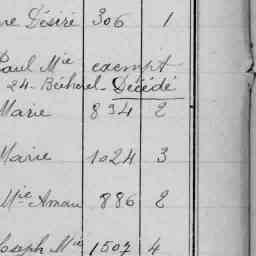 ne Désiré 306 1
Paul Mie exempt
24 - Décédé
Marie 894 2
Marie 1024 3
Mie Aman 886 2
Joseph Mie 1507 4